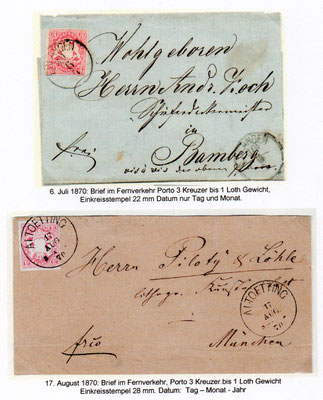 Wohlgeboren
Herrn Andr. Koch
Schieferdeckermeister
in
frei
Bamberg
vis à vis der obern
6. Juli 1870: Brief im Fernverkehr Porto 3 Kreuzer bis 1 Loth Gewicht,
Einkreisstempel 22 mm Datum nur Tag und Monat.
ALTOETTING
17
AUG
70
Herrn Piloty & Löhle
Kunstanstalt
ALTOETTING
17
AUG
70
frco
München
17. August 1870: Brief im Fernverkehr, Porto 3 Kreuzer bis 1 Loth Gewicht
Einkreisstempel 28 mm. Datum: Tag – Monat - Jahr